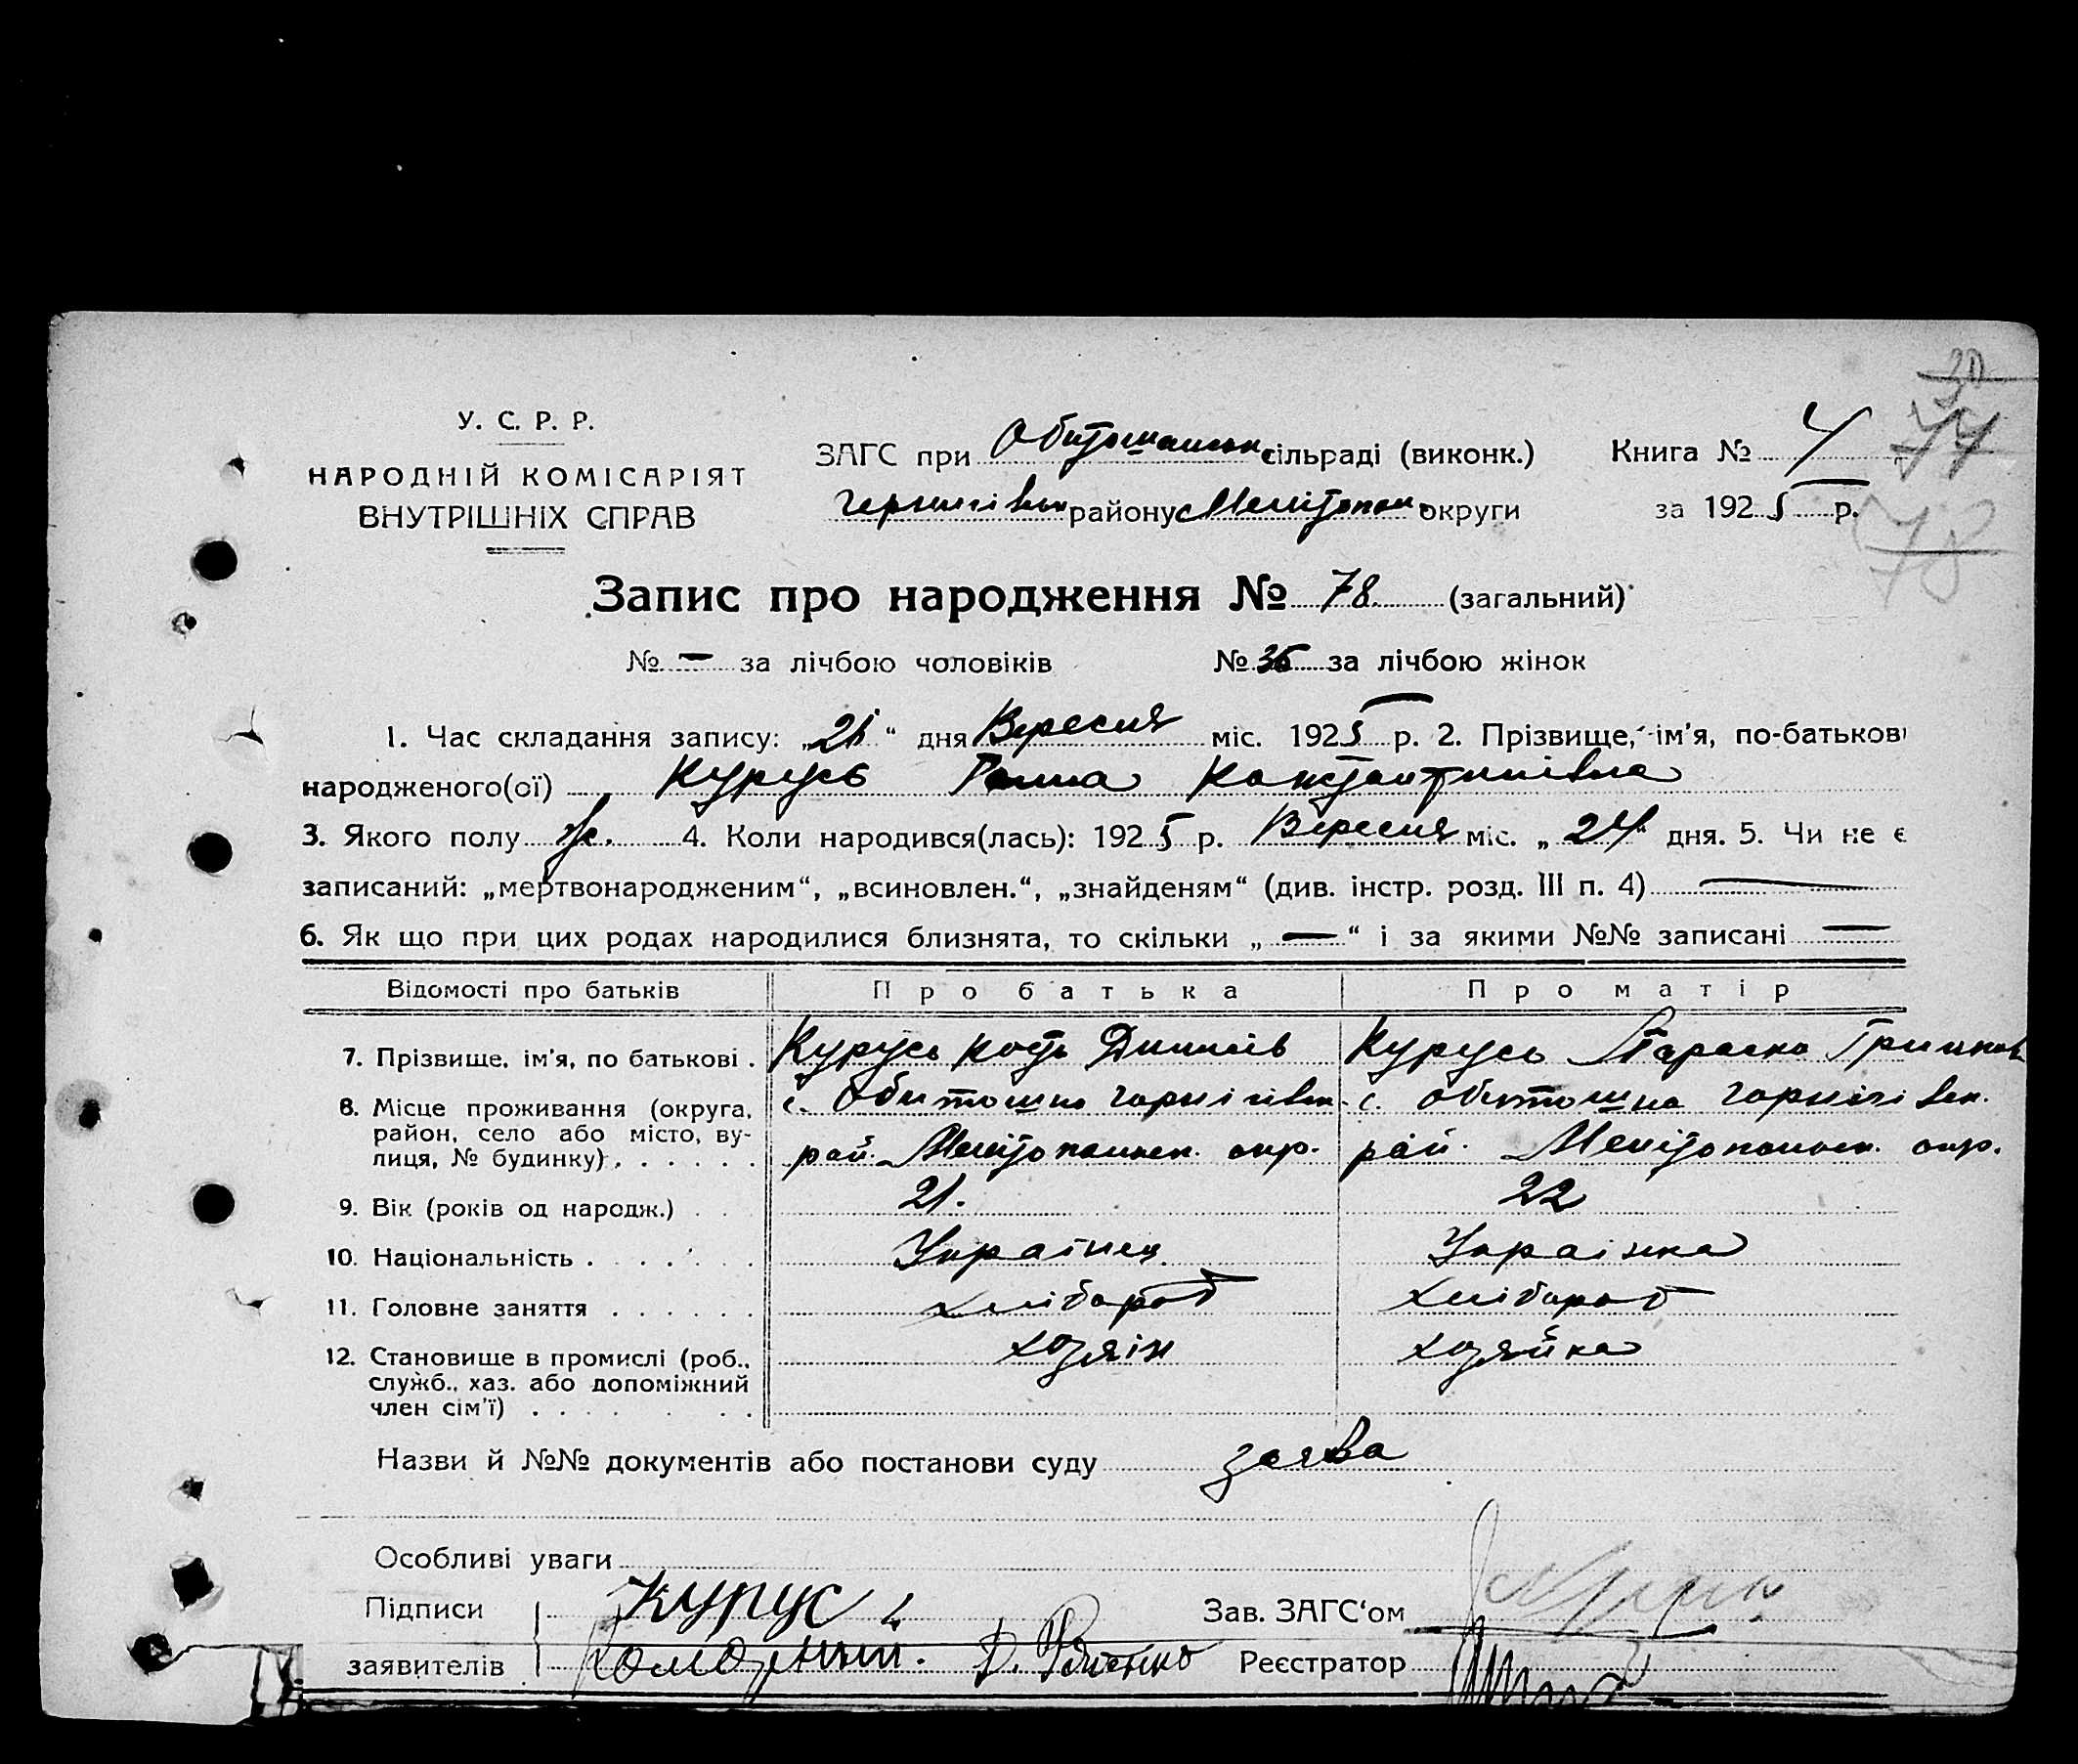 У. С. Р. Р.
НАРОДНІЙ КОМІСАРІЯТ
ВНУТРІШНІХ СПРАВ
ЗАГС при Обиточанськ. сільраді (виконк.)
Чернигівськ району Мелітопол. округи
Книга № 4
за 1925 р.
78
Запис про народження № 78 (загальний)
№ — за лічбою чоловіків № 36 за лічбою жінок
1. Час складання запису: „ “ дня Вересня міс. 1925 р. 2. Прізвище, ім'я, по-батькові
народженого(ої) Курусь Ганна Констянтинівна
3. Якого полу ж. 4. Коли народився(лась): 1925 р. Вересня міс. „24“ дня. 5. Чи не є
записаний: „мертвонародженим“, „всиновлен.“, „знайденям“ (див. інстр. розд. III п. 4) —
6. Як що при цих родах народилися близнята, то скільки „—“ і за якими №№ записані —
Відомості про батьків Про батька Про матір
7. Прізвище, ім'я, по батькові . Курусь Кость Курусь
8. Місце проживання (округа, район, село або місто, вулиця, № будинку) . . . . . .
с. Обиточна Чернігівськ. рай. Мелітопольськ. окр.
с. Обиточна Чернігівськ. рай. Мелітопольськ. окр.
9. Вік (років од народж.) . . . 21. 22
10. Національність . . . . . . Українец Українка
11. Головне заняття . . . . . . хлібороб хлібороб
12. Становище в промислі (роб., служб., хаз. або допоміжний член сім'ї) . . . . . .
хозяін хозяйка
Назви й №№ документів або постанови суду заява
Особливі уваги
Підписи Курус Зав. ЗАГС'ом
заявителів Д. Реєстратор